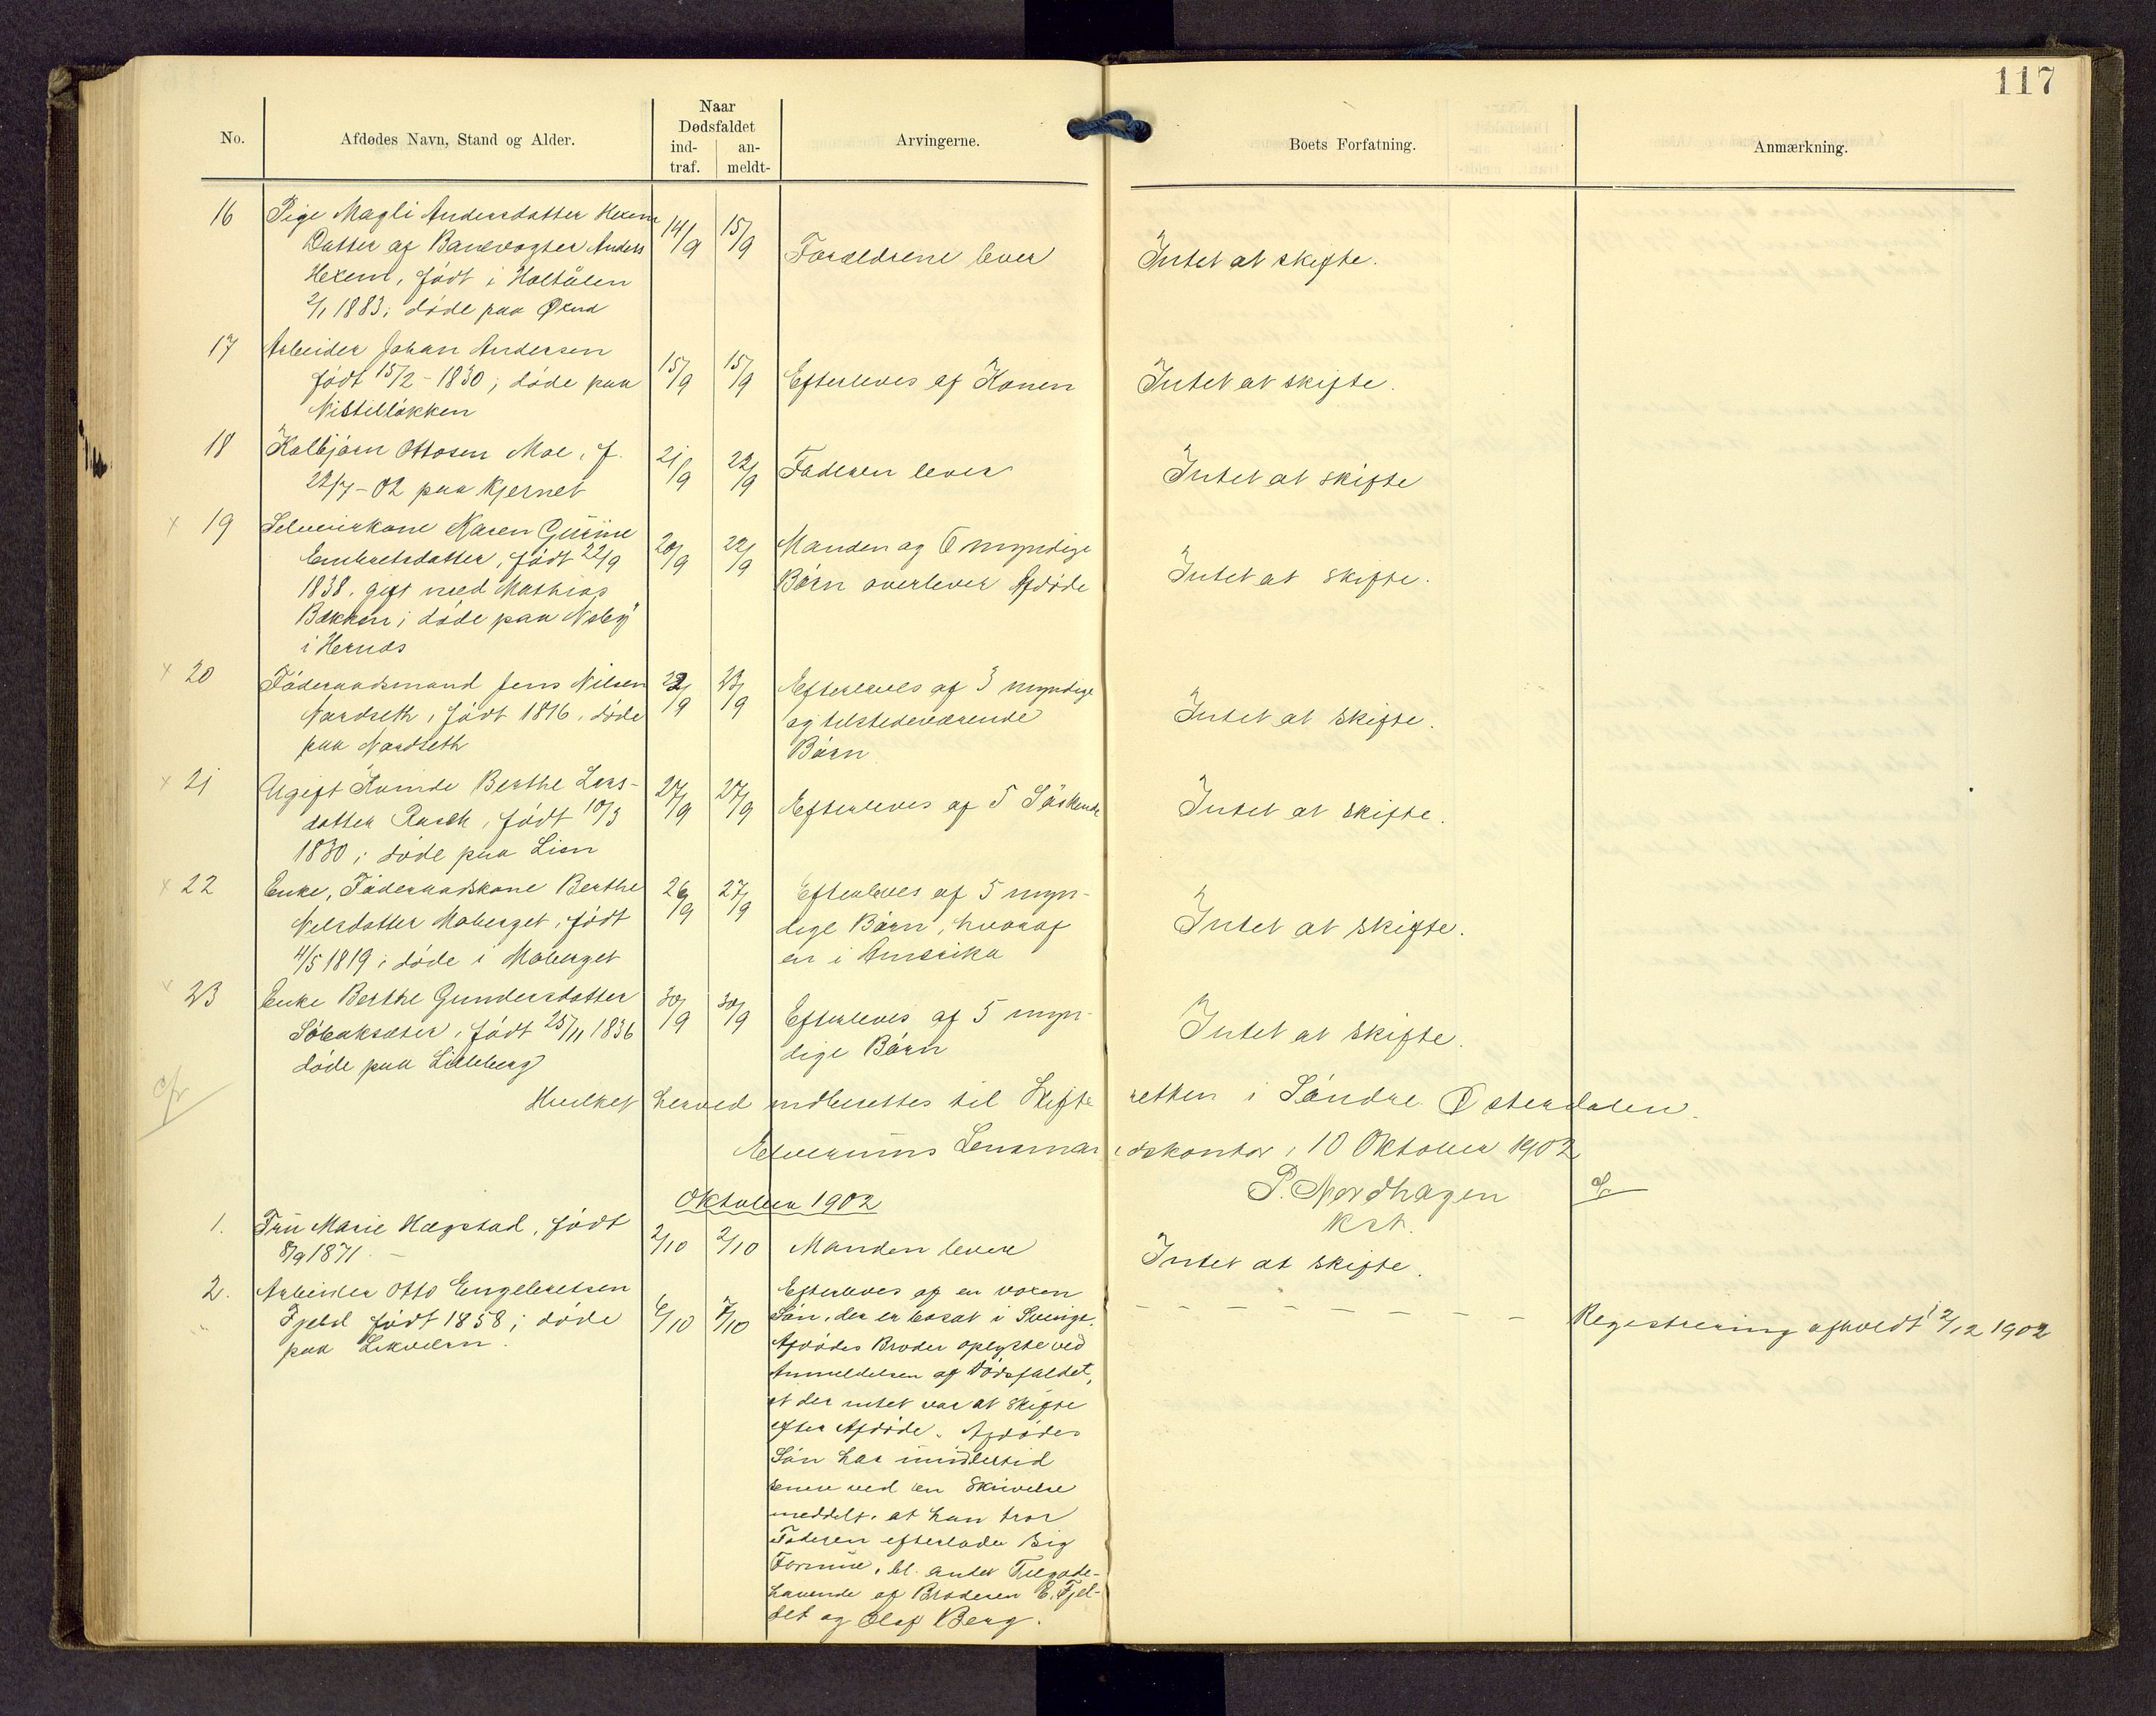 117
No.
Afdødes Navn, Stand og Alder.
Naar
Dødsfaldet
ind-
traf.
an-
meldt-
Arvingerne.
Boets Forfatning.
Anmærkning.
16 Pige Magli Andersdatter Hexem 14/9 15/9
Datter af Banevogter Anders Forældrene lever Intet at skifte.
Hexem, født i Holtålen
2/1 1883; døde paa Øxna
17 Arbeider Johan Andersen 15/9 15/9
født 15/2 - 1830; døde paa Efterleves af Konen Intet at skifte.
Nistilløkken
18 Kolbjørn Ottosen Moe, f. 21/9 22/9 Faderen lever Intet at skifte
22/7 - 02 paa Kjernet
x 19 Selveierkone Karen Gurine
Embretsdatter, født 22/9 20/9 22/9 Manden og 6 myndige
1838, gift med Mathias Børn overlever Afdøde Intet at skifte.
Bakken; døde paa Noby
i Hernæs
x 20 Føderaadsmand Jens Nilsen 22/9 23/9 Efterleves af 3 myndige
Nordseth, født 1816, døde og tilstedeværende Intet at skifte.
paa Nordseth Børn
x 21 Ugift Kvinde Berthe Lars- 27/9 27/9
datter Rusch, født 10/3 Efterleves af 5 Søskende Intet at skifte.
1830; døde paa Lien
x 22 Enke, Føderaadskone Berthe 26/9 27/9 Efterleves af 5 myn-
Nilsdatter Moberget, født dige Børn, hvoraf Intet at skifte.
4/5 1819; døde i Moberget en i Amerika
x 23 Enke Berthe Gundersdatter 30/9 30/9 Efterleves af 5 myn-
født 25/11 1836 dige Børn Intet at skifte.
døde paa Lilleberg
Hvilket herved indberettes til Skifteretten i Søndre Østerdalen.
Elverums Lensmandskontor, 10 Oktober 1902
P. Nordhagen
Kst.
Oktober 1902
1. Fru Marie Hagstad, født 2/10 2/10 Manden lever Intet at skifte.
8/9 1871. -
2. Arbeider Otto Engebretsen 6/10 7/10 Efterleves af en voxen - - - - - - - Registrering afholdt 12/12 1902
Fjeld født 1858; døde Søn, der er bosat i Sverige.
paa Lekvern. Afdødes Broder oplyste ved
Anmeldelsen af Dødsfaldet,
at der intet var at skifte
efter Afdøde. Afdødes
Søn har imidlertid
senere ved en Skrivelse
meddelt, at han tror
Faderen efterlader sig
Formue, bl. andet Tilgode-
havende af Broderen E. Fjel-
det og Olaf Berg.